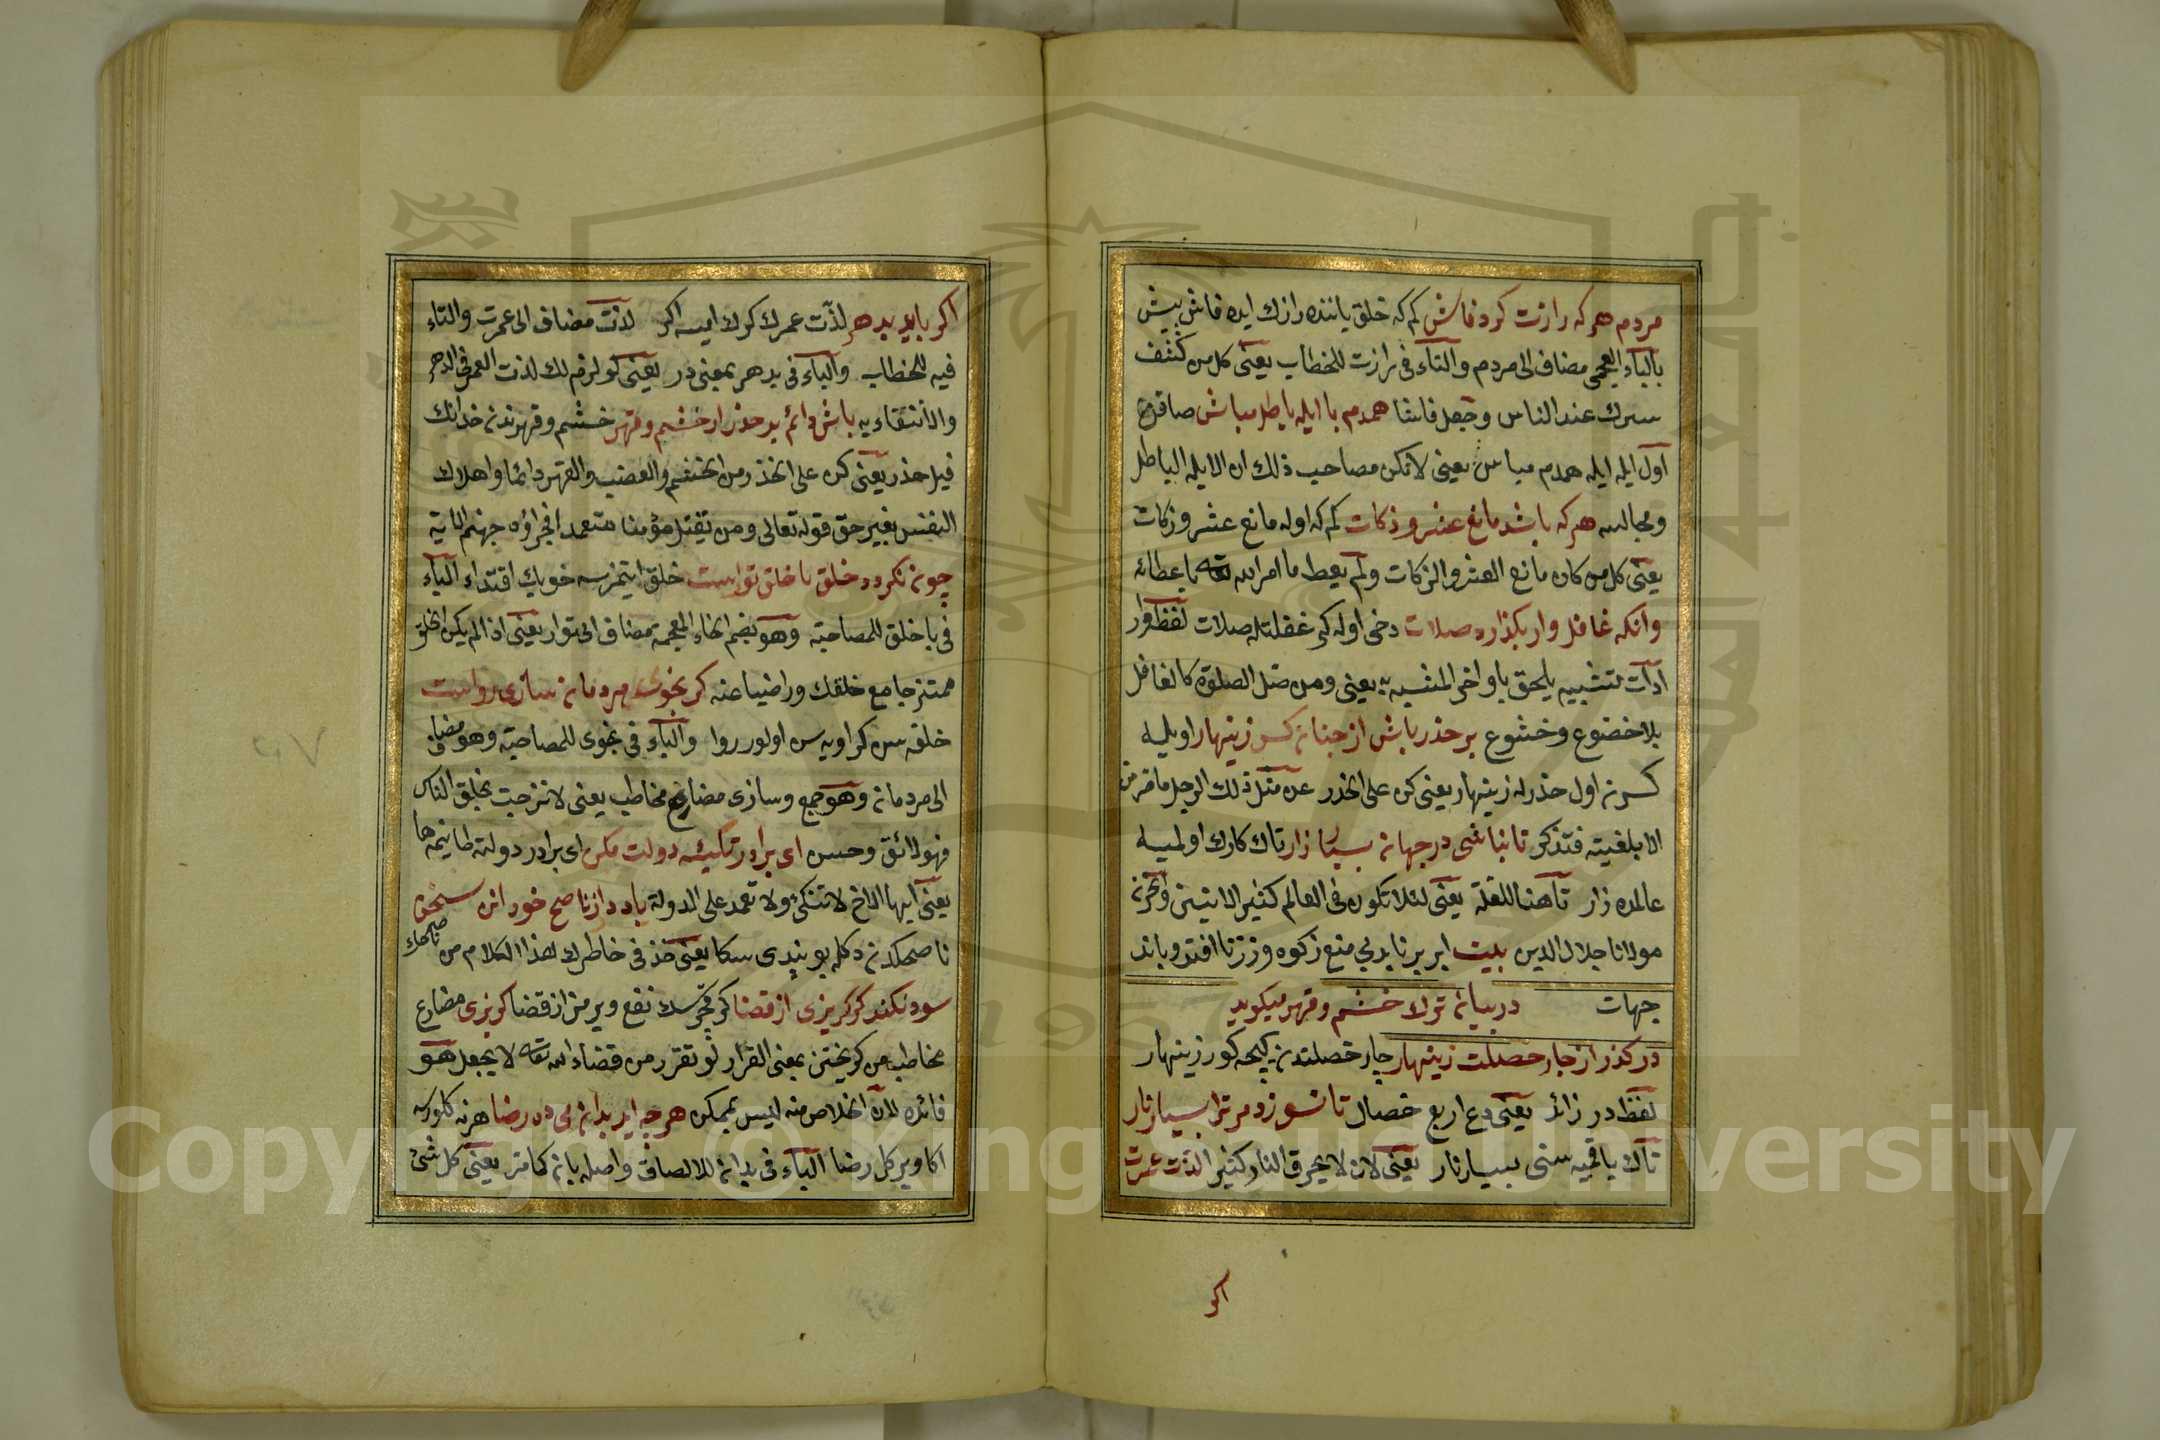 مردم هركه رازت كرد فاش كم كه خلق ياننده رازك ايده فاش پيش
بالباء العجمى مضاف الى مردم والتاء فى رازت للخطاب يعنى كل من كشف
سرك عند الناس وجعل فاشا همدم با ابله باطل مباش صاقن
اول ابله ايله همدم مباش يعنى لا تكن مصاحب ذلك ان الابله الباطل
ومجالسه هركه باشد مانع عشر وزكات كم كه اوله مانع عشر وزكات
يعنى كل من كان مانع العشر والزكات ولم يعط ما امر الله تعالى باعطائه
وانكه غافل وار بكذارد صلات دخى اوله كم غفلتله صلات لفظ وار
ادات تشبيه يلحق باواخر المشبه به يعنى ومن صلى الصلوة كالغافل
بلا خضوع وخشوع بر حذر باش از چنان كس زينهار اويله
كسدن اول حذرله زينهار يعنى كن على الحذر عن مثل ذلك الرجل ما قدمن
الا بلغيته فتذكر تا نباشى در جهان بسيار زار تاك كارك اولميه
عالمده زار تا هنا للغلة يعنى لئلا تكون فى العالم كثير الانين والحزن
مولانا جلال الدين بيت ابر برنايد پى منع زكوه وز زنا افتد وبا اندر
جهات در بيان ترك خشم وقهر ميكويد
در كذر از چار خصلت زينهار چار خصلتدن كچه كور زينهار
لفظ در زائد يعنى دع اربع خصال تا نسوزد مر ترا بسيار نار
تاك ياقميه سنى بسيار نار يعنى لان لا يحرق النار كثيرا لذت عمرت
اكر
اكر بايد بدهر لذت عمرك كرك ايسه اكر لذت مضاف الى عمرت والتاء
فيه للخطاب والباء فى بدهر بمعنى در يعنى لو لزم لك لذت العمر فى الدهر
والانتفاء به باش دائم بر حذر از خشم وقهر خشم وقهرندن خدانك
قيل حذر يعنى كن على الحذر من الخشم والغضب والقهر دائما واهلاك
النفس بغير حق قوله تعالى ومن يقتل مؤمنا متعمدا فجزاؤه جهنم الاية
چون نكردد خلق با خلق تو راست خلق ايتمزسه خويك اقتداء الباء
فى با خلق للمصاحبة وهو بضم الخاء المعجمة مضاف الى تو ار يعنى اذا لم يكن الخلق
ممتزجا مع خلقك وراضيا عنه كر بخوى مردمان سازى رواست
خلقه سن كر اويه سن اولور روا والباء فى بخوى للمصاحبة وهو مضاف
الى مردمان وهو جمع وسازى مضارع مخاطب يعنى لا تزجت بخلق الناس
فهو لائق وحسن اى برادر تكيه بر دولت مكن اى برادر دولته طاينمه ها
يعنى ايها الاخ لا تتكئ ولا تعمد على الدولة ياد دار از ناصح خود اين سخن
ناصحكدن دكله بو پندى سكا يعنى خذ فى خاطرك هذا الكلام من ناصحك
سود نكند كر كريزى از قضا كر قچرسك نفع ويرمز از قضا كريزى مضارع
مخاطب من كريختن بمعنى الفرار لو تفر من قضاء الله تعالى لا يجعل هو
فائده لان الخلاص منه ليس بممكن هرچه ايد بدان مى ده رضا هرنه كلورسه
اكا ويركل رضا الباء فى بدان للالصاق واصله بان كما مر يعنى كل شئ